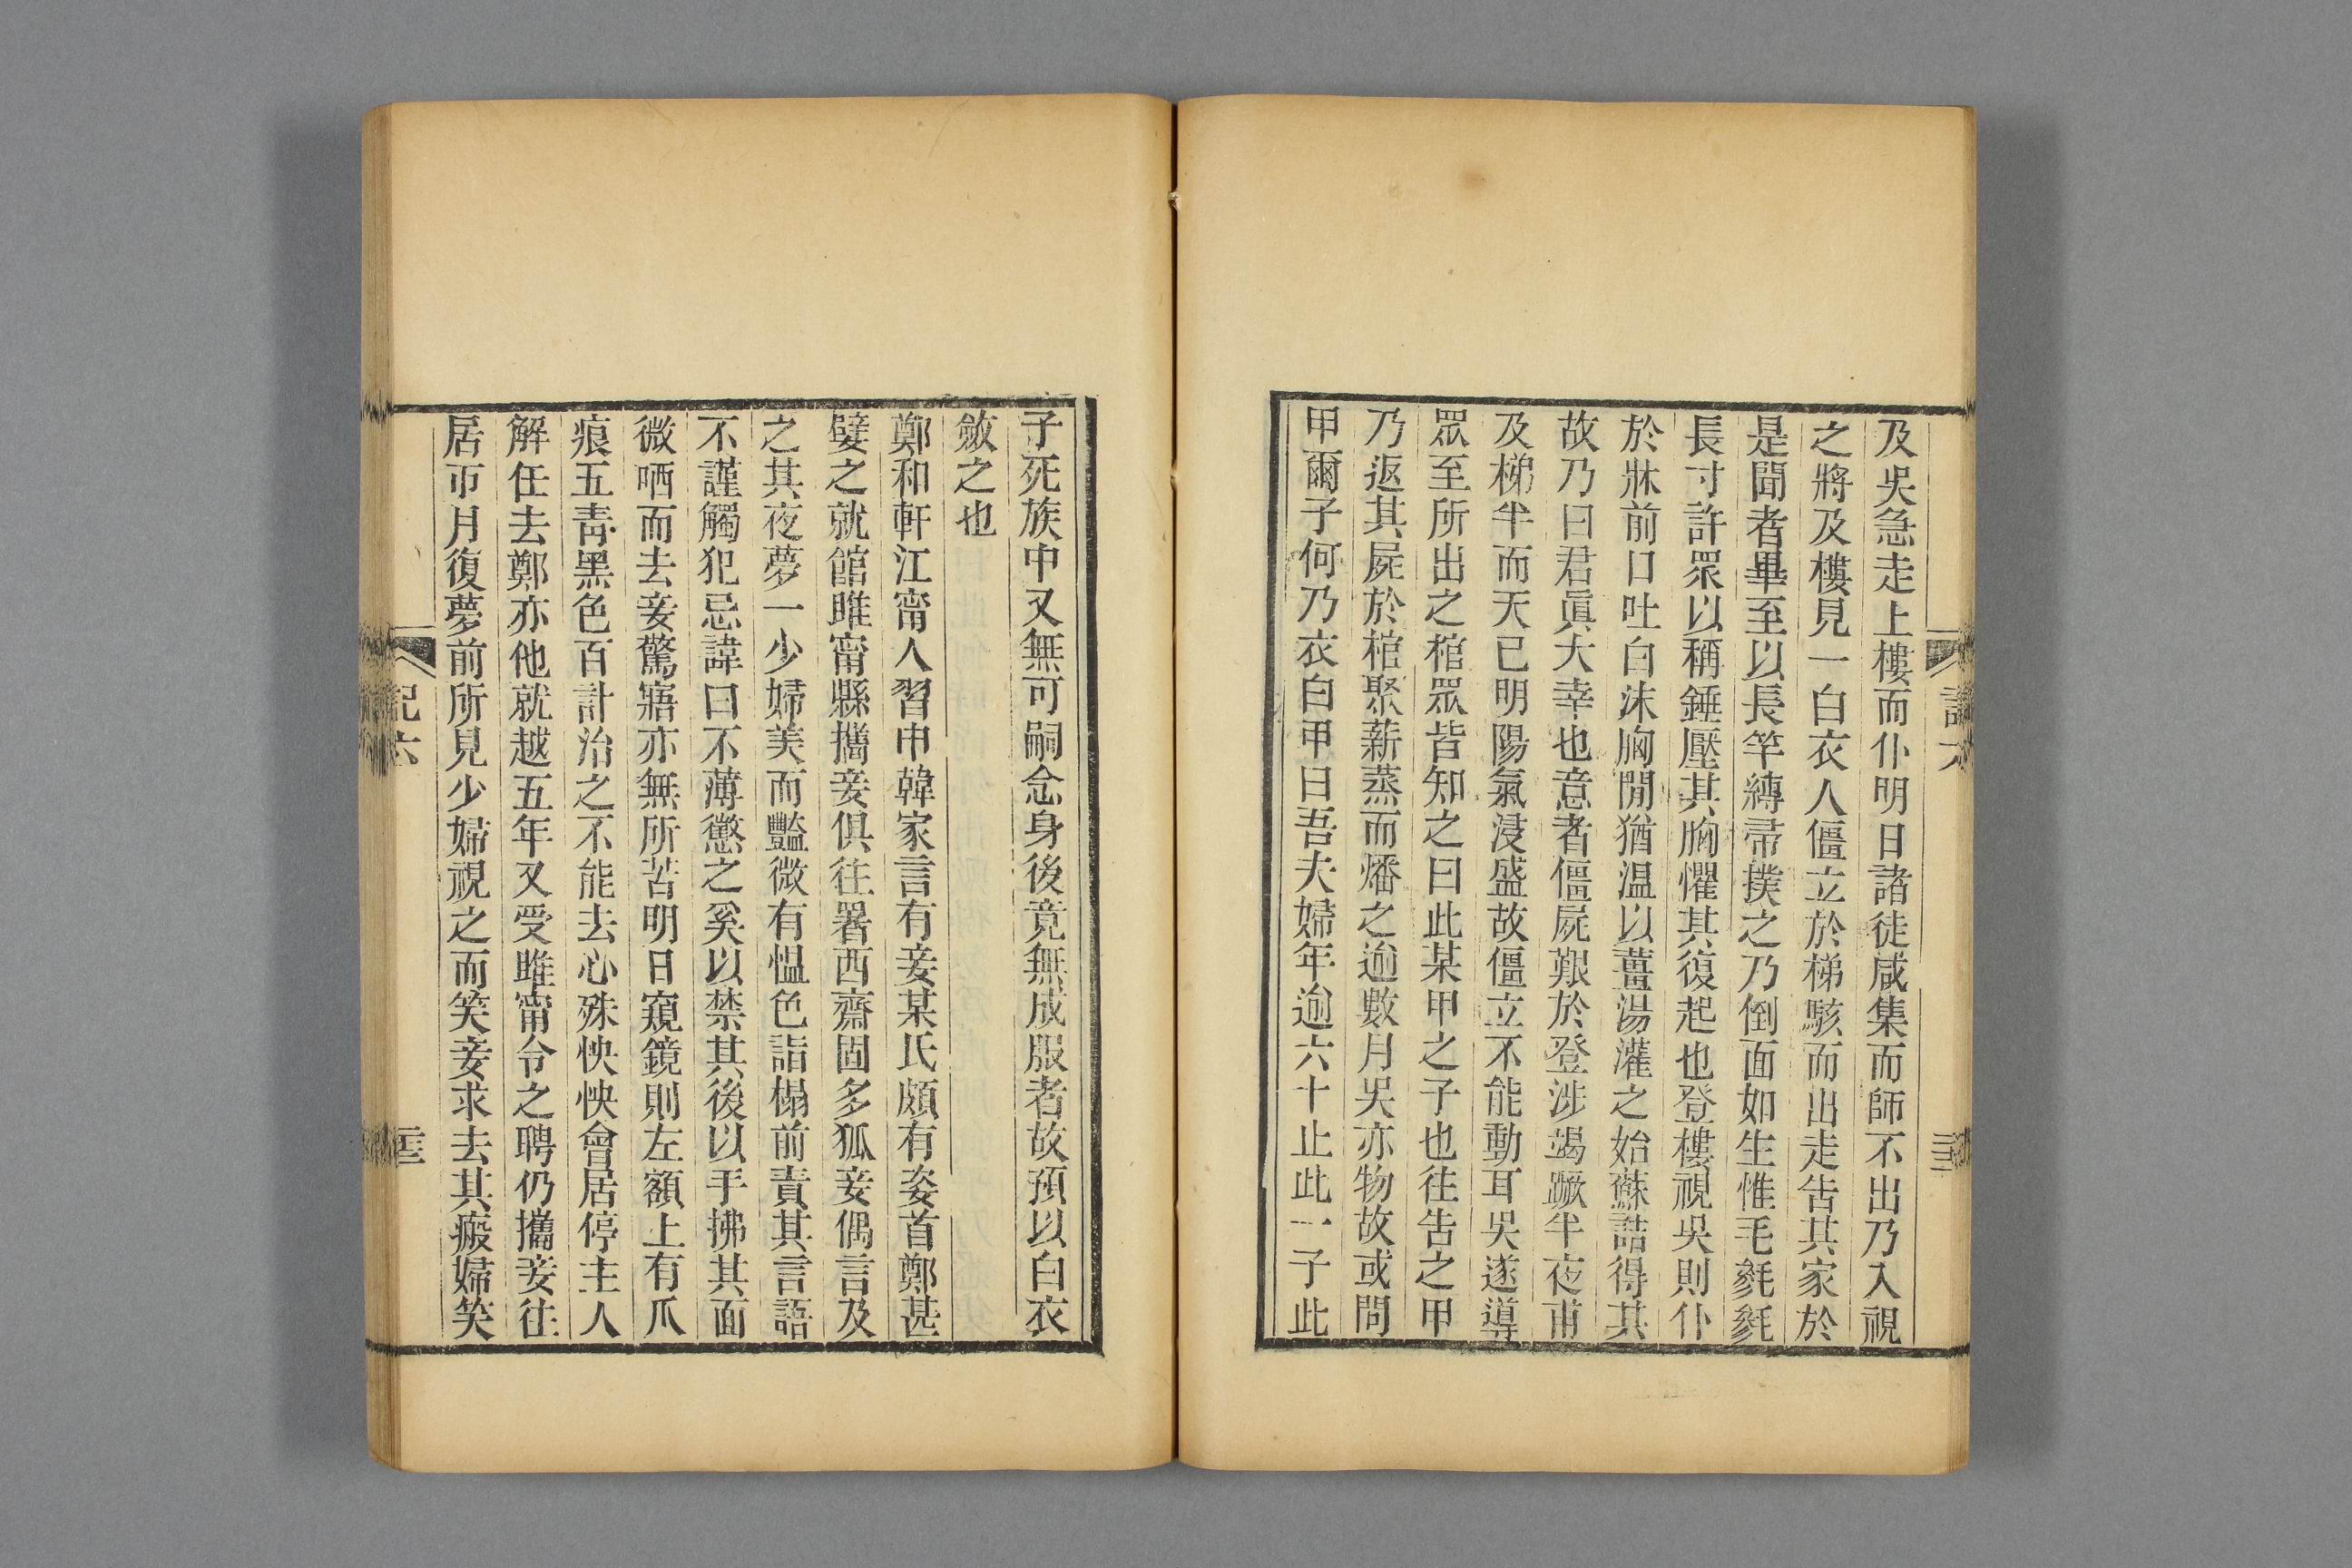 及吳急走上樓而仆明日諸徒咸集而師不出乃入視
之將及樓見一白衣人僵立於梯駭而出走告其家於
是聞者畢至以長竿縛帚撲之乃倒面如生惟毛毿毿
長寸許眾以稱錘壓其胸懼其復起也登樓視吳則仆
於牀前口吐白沫胸閒猶温以薑湯灌之始蘇詰得其
故乃曰君真大幸也意者僵屍艱於登涉竭蹶半夜甫
及梯半而天已明陽氣浸盛故僵立不能動耳吳遂導
眾至所出之棺眾皆知之曰此某甲之子也往告之甲
乃返其屍於棺聚薪蒸而燔之逾數月吳亦物故或問
甲爾子何乃衣白甲曰吾夫婦年逾六十止此一子此
子死族中又無可嗣念身後竟無成服者故預以白衣
斂之也
鄭和軒江甯人習申韓家言有妾某氏頗有姿首鄭甚
嬖之就館睢甯縣攜妾俱往署西齋固多狐妾偶言及
之其夜夢一少婦美而豔微有愠色詣榻前責其言語
不謹觸犯忌諱曰不薄懲之奚以禁其後以手拂其面
微哂而去妾驚寤亦無所苦明日窺鏡則左額上有爪
痕五青黑色百計治之不能去心殊怏怏會居停主人
解任去鄭亦他就越五年又受睢甯令之聘仍攜妾往
居帀月復夢前所見少婦視之而笑妾求去其瘢婦笑
記六